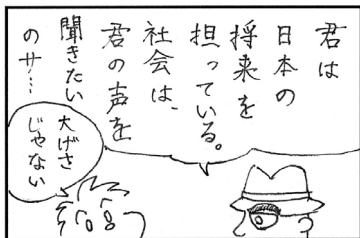 君は
日本の
将来を
担っている。
社会は、
君の声を
聞きたい
のサ…
大げさ
じゃない